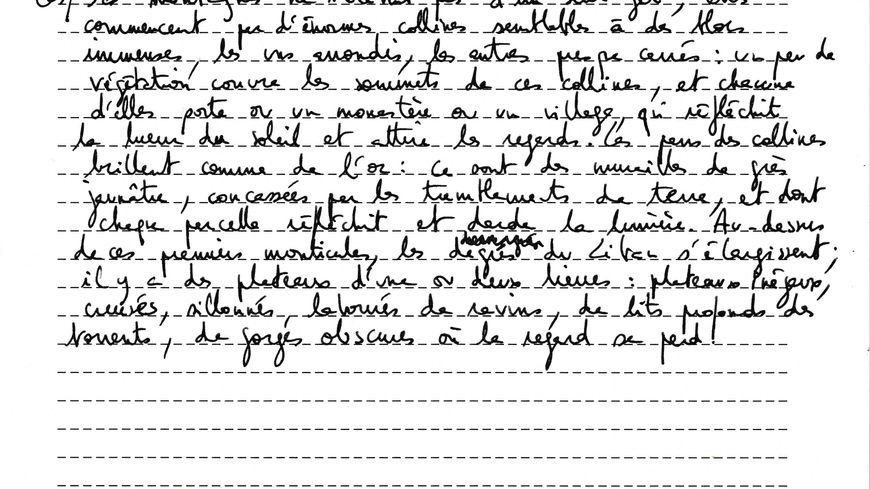 commencent par d'énormes collines semblables à des blocs
immenses, les uns arrondis, les autres presque carrés : un peu de
végétation couvre les sommets de ces collines, et chacune
d'elles porte ou un monastère ou un village, qui réfléchit
la lueur du soleil et attire les regards. Les pans des collines
brillent comme de l'or : ce sont des murailles de grès
jaunâtre, concassées par les tremblements de terre, et dont
chaque parcelle réfléchit et darde la lumière. Au-dessus
de ces premiers monticules, les degrés du Liban s'élargissent ;
il y a des plateaux d'une ou deux lieues : plateaux inégaux,
creusés, sillonnés, labourés de ravins, de lits profonds des
torrents, de gorges obscures où le regard se perd.